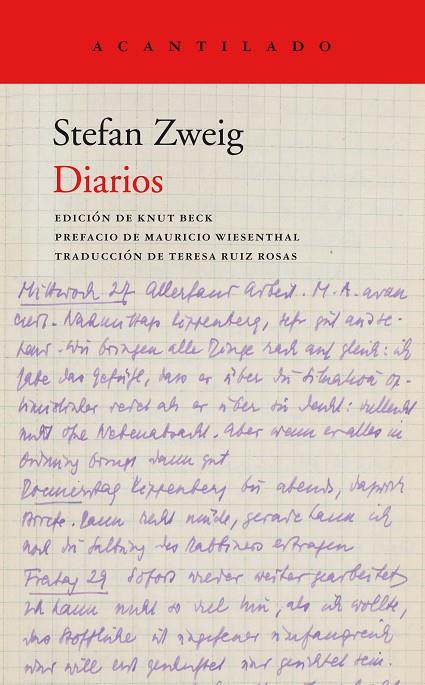 ACANTILADO
Stefan Zweig
Diarios
EDICIÓN DE KNUT BECK
PREFACIO DE MAURICIO WIESENTHAL
TRADUCCIÓN DE TERESA RUIZ ROSAS
Mittwoch 27 Allerhand Arbeit. M. A. avan
ciert. Nachmittags Kippenberg, sehr gut
wir bringen alle Dinge nach auf gleich: ich
habe das Gefühl, dass er über die Situation op-
timistischer redet als er über sie denkt: vielleicht
nicht ohne Nebenabsicht. Aber wenn er alles in
Ordnung bringt dann gut
Donnerstag Kippenberg bis abends,
Briefe. Kann nicht gerade kann ich
noch die des Rabbiners ertragen
Freitag 29 Sofort wieder weiter gearbeitet
Ich kann nicht so viel hin, als ich wollte,
das Stoffliche ist ungeheuer umfangreich
und will erst und gerichtet sein.